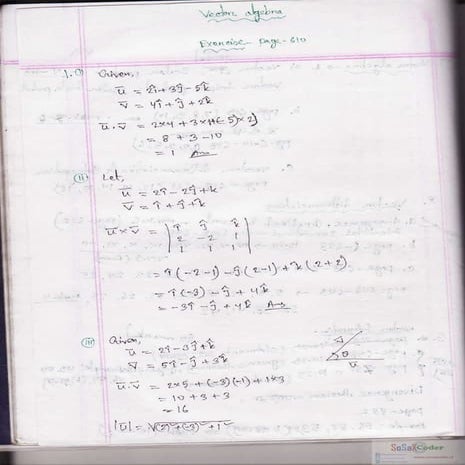 Vector algebra
Exercise page-610
1. i) Given,
u̅ = 2î + 3ĵ - 5k̂
v̅ = 4î + ĵ + 2k̂
u̅.v̅ = 2×4 + 3×1+(-5)×2}
= 8 + 3 - 10
= 1 Ans
ii) Let,
u̅ = 2î - 2ĵ + k̂
v̅ = î + ĵ + k̂
u̅×v̅ = | î ĵ k̂ |
2 -2 1
1 1 1
= î(-2-1) - ĵ(2-1) + k̂(2+2)
= î(-3) - ĵ + 4k̂
= -3î - ĵ + 4k̂ Ans
iii) Given,
u̅ = 2î - 3ĵ + k̂
v̅ = 5î - ĵ + 3k̂
v̅
θ
u̅
u̅.v̅ = 2×5 + (-3)(-1) + 1×3
= 10 + 3 + 3
= 16
|u̅| = √(2)² + (-3)² + 1²
SoSaXCoder